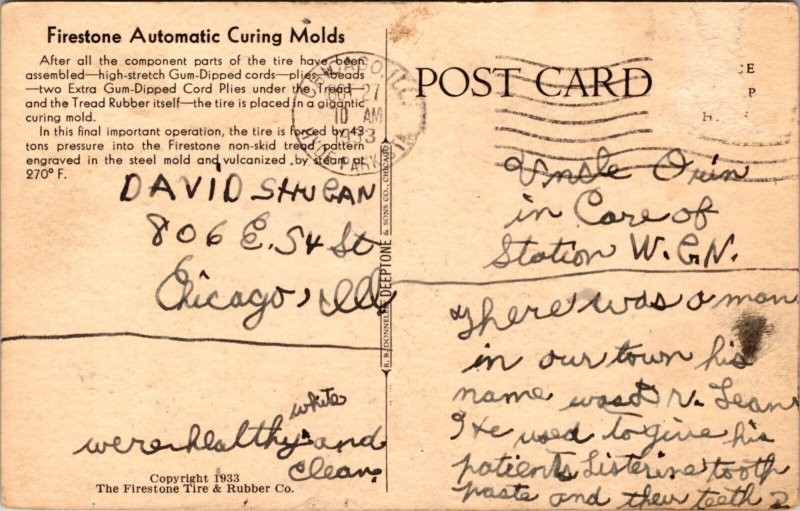 Firestone Automatic Curing Molds
After all the component parts of the tire have been
assembled—high-stretch Gum-Dipped cords—plies—beads
—two Extra Gum-Dipped Cord Plies under the Tread—
and the Tread Rubber itself—the tire is placed in a gigantic
curing mold.
In this final important operation, the tire is forced by 43
tons pressure into the Firestone non-skid tread pattern
engraved in the steel mold and vulcanized by steam at
270° F.
CHICAGO, ILL.
27
10 AM
1933
HYDE PARK STA
POST CARD
DAVID SHUGAN
806 E. 54 St
Chicago, Ill.
Unsle Orin
in Care of
Station W.G.N.
R. R. DONNELLEY & SONS CO., CHICAGO
DEEPTONE
There was a man
in our town his
name was Dr. Lean
He used to give his
patients Listerine tooth
paste and their teeth 2
were healthy, white and
clean.
Copyright 1933
The Firestone Tire & Rubber Co.